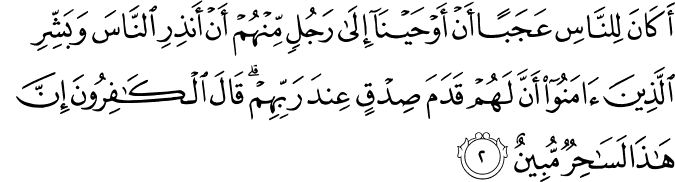 أَكَانَ لِلنَّاسِ عَجَبًا أَنْ أَوْحَيْنَآ إِلَىٰ رَجُلٍ مِّنْهُمْ أَنْ أَنذِرِ ٱلنَّاسَ وَبَشِّرِ
ٱلَّذِينَ ءَامَنُوٓا۟ أَنَّ لَهُمْ قَدَمَ صِدْقٍ عِندَ رَبِّهِمْ ۗ قَالَ ٱلْكَـٰفِرُونَ إِنَّ
هَـٰذَا لَسَـٰحِرٌ مُّبِينٌ ٢